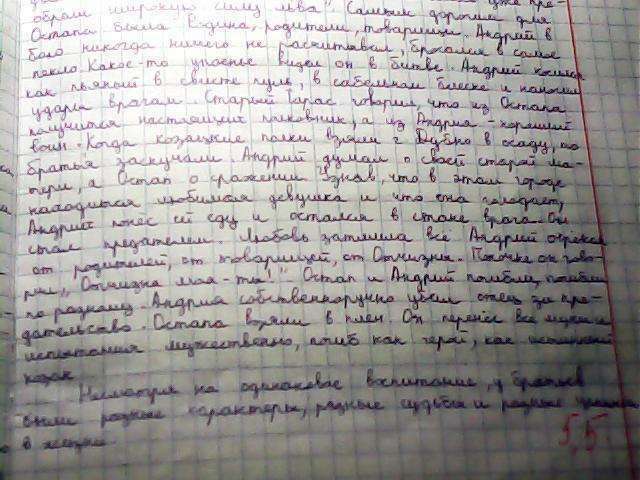 обрали широкую силу льва". Самым дорогим для
Остапа была Отчизна, родители, товарищи. Андрий в
бою никогда ничего не рассчитывал, бросался в самое
пекло. Какое-то упоенье видел он в битве. Андрий кидался
как пьяный в свисте пуль, в сабельном блеске и наносил
удары врагам. Старый Тарас говорил, что из Остапа
получится настоящий полковник, а из Андрия - хороший
воин. Когда козацкие полки взяли г. Дубно в осаду, то
братья заскучали. Андрий думал о своей старой ма-
тери, а Остап о сражении. Узнав, что в этом городе
находится любимая девушка и что она голодает,
Андрий понёс ей еду и остался в стане врага. Он
стал предателем. Любовь затмила всё. Андрий отрёкся
от родителей, от товарищей, от Отчизны. Паночке он гово-
рил, "Отчизна моя - ты!". Остап и Андрий погибли, погибли
по разному. Андрия собственноручно убил отец за пре-
дательство. Остапа взяли в плен. Он перенёс все
испытания мужественно, погиб как герой, как истинный
козак.
Несмотря на одинаковое воспитание, у братьев
были разные характеры, разные судьбы и разные
в жизни.
5,5